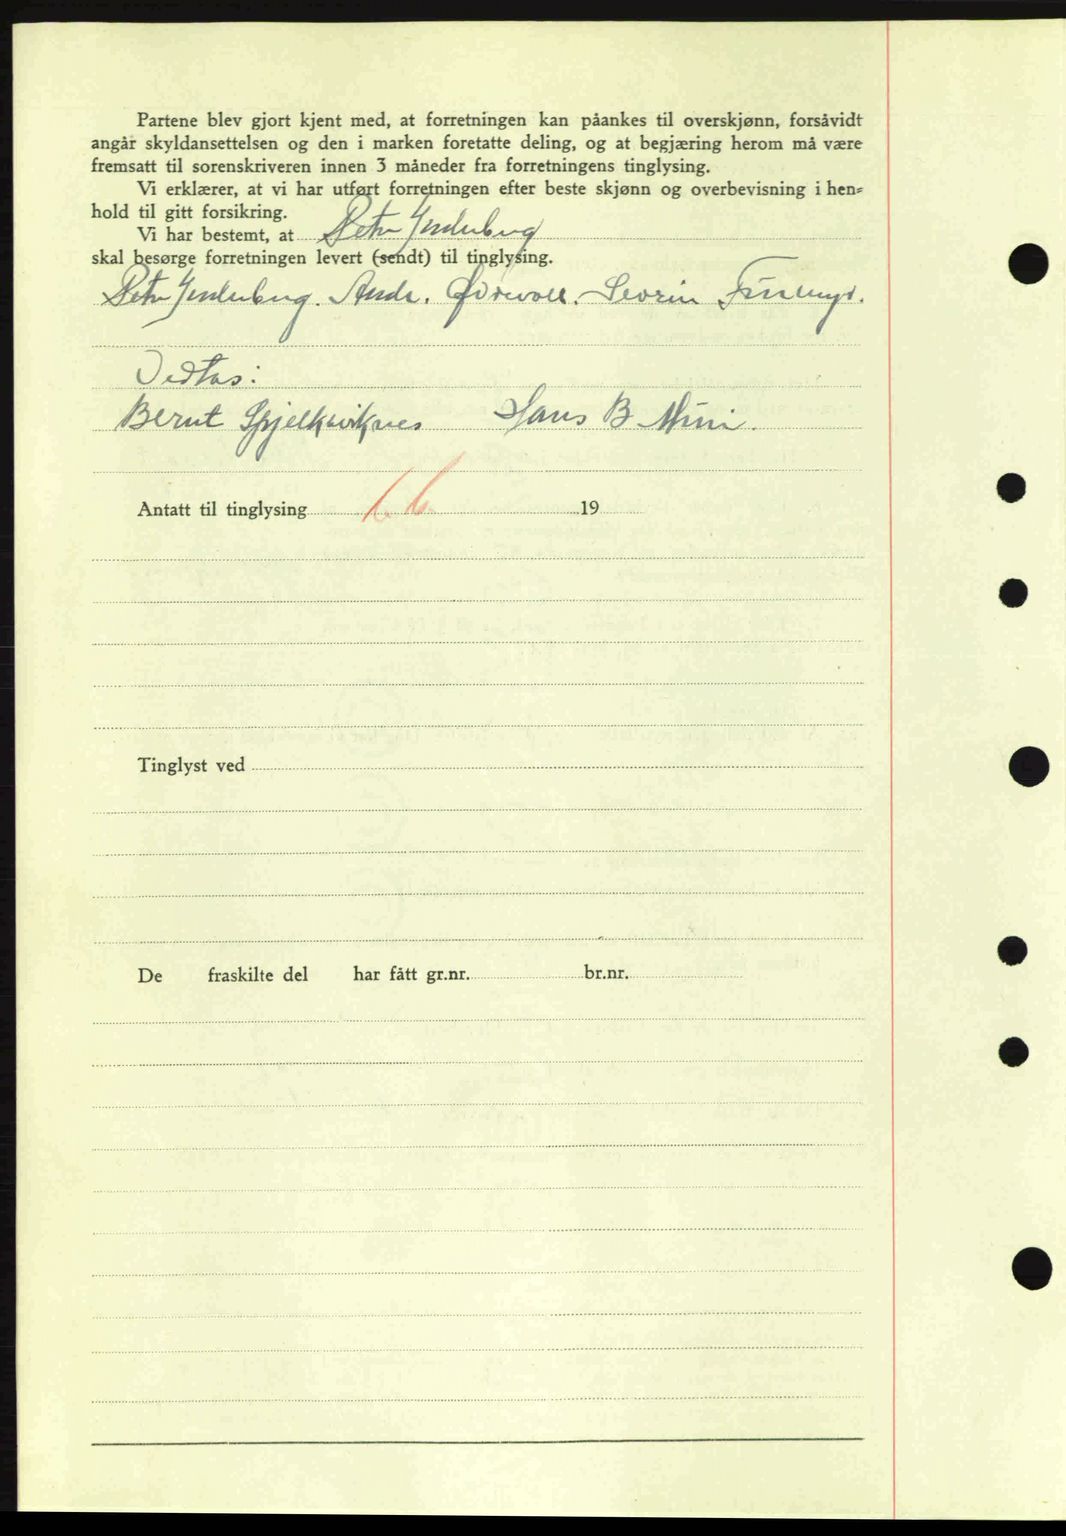 Partene blev gjort kjent med, at forretningen kan påankes til overskjønn, forsåvidt
angår skyldansettelsen og den i marken foretatte deling, og at begjæring herom må være
fremsatt til sorenskriveren innen 3 måneder fra forretningens tinglysing.
Vi erklærer, at vi har utført forretningen efter beste skjønn og overbevisning i hen=
hold til gitt forsikring.
Vi har bestemt, at Petr Inderberg
skal besørge forretningen levert (sendt) til tinglysing.
Petr Inderberg. Andr. Ørevoll. Sevrin
Vedtas:
Bernt Spjelkaviknes Hans B.
Antatt til tinglysing 66 19
Tinglyst ved
De fraskilte del har fått gr.nr. br.nr.